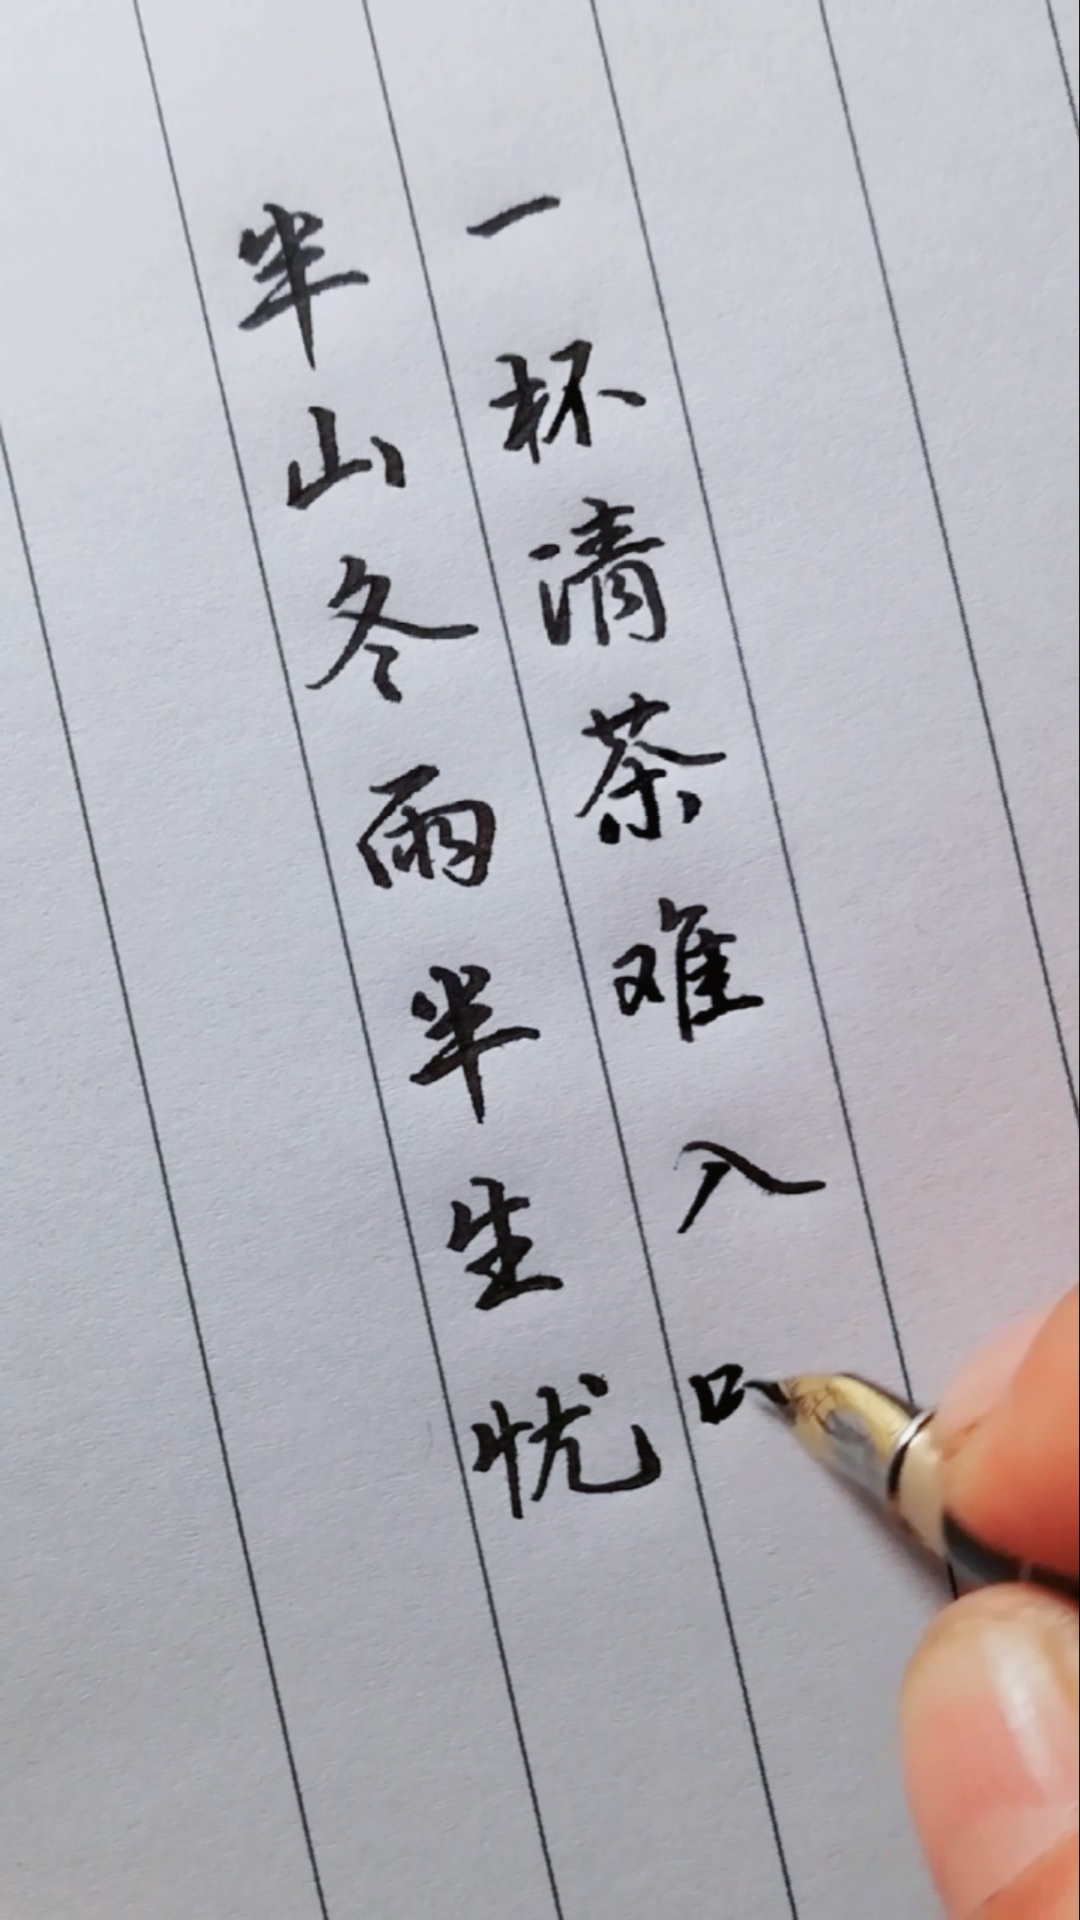 半山冬雨半生忧
一杯清茶难入口